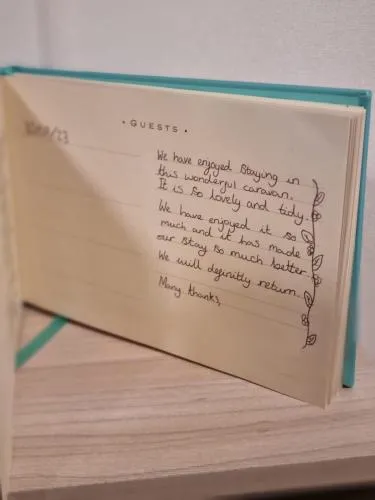 • GUESTS •
We have enjoyed staying in
this wonderful caravan.
It is so lovely and tidy.
We have enjoyed it so
much and it has made
our stay so much better.
We will definitly return.
Many thanks,